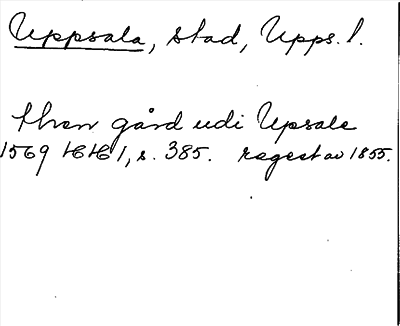 Uppsala, stad, Upps. l.
then gård udi Upsale
1569 HH 1, s. 385. regest av 1855.